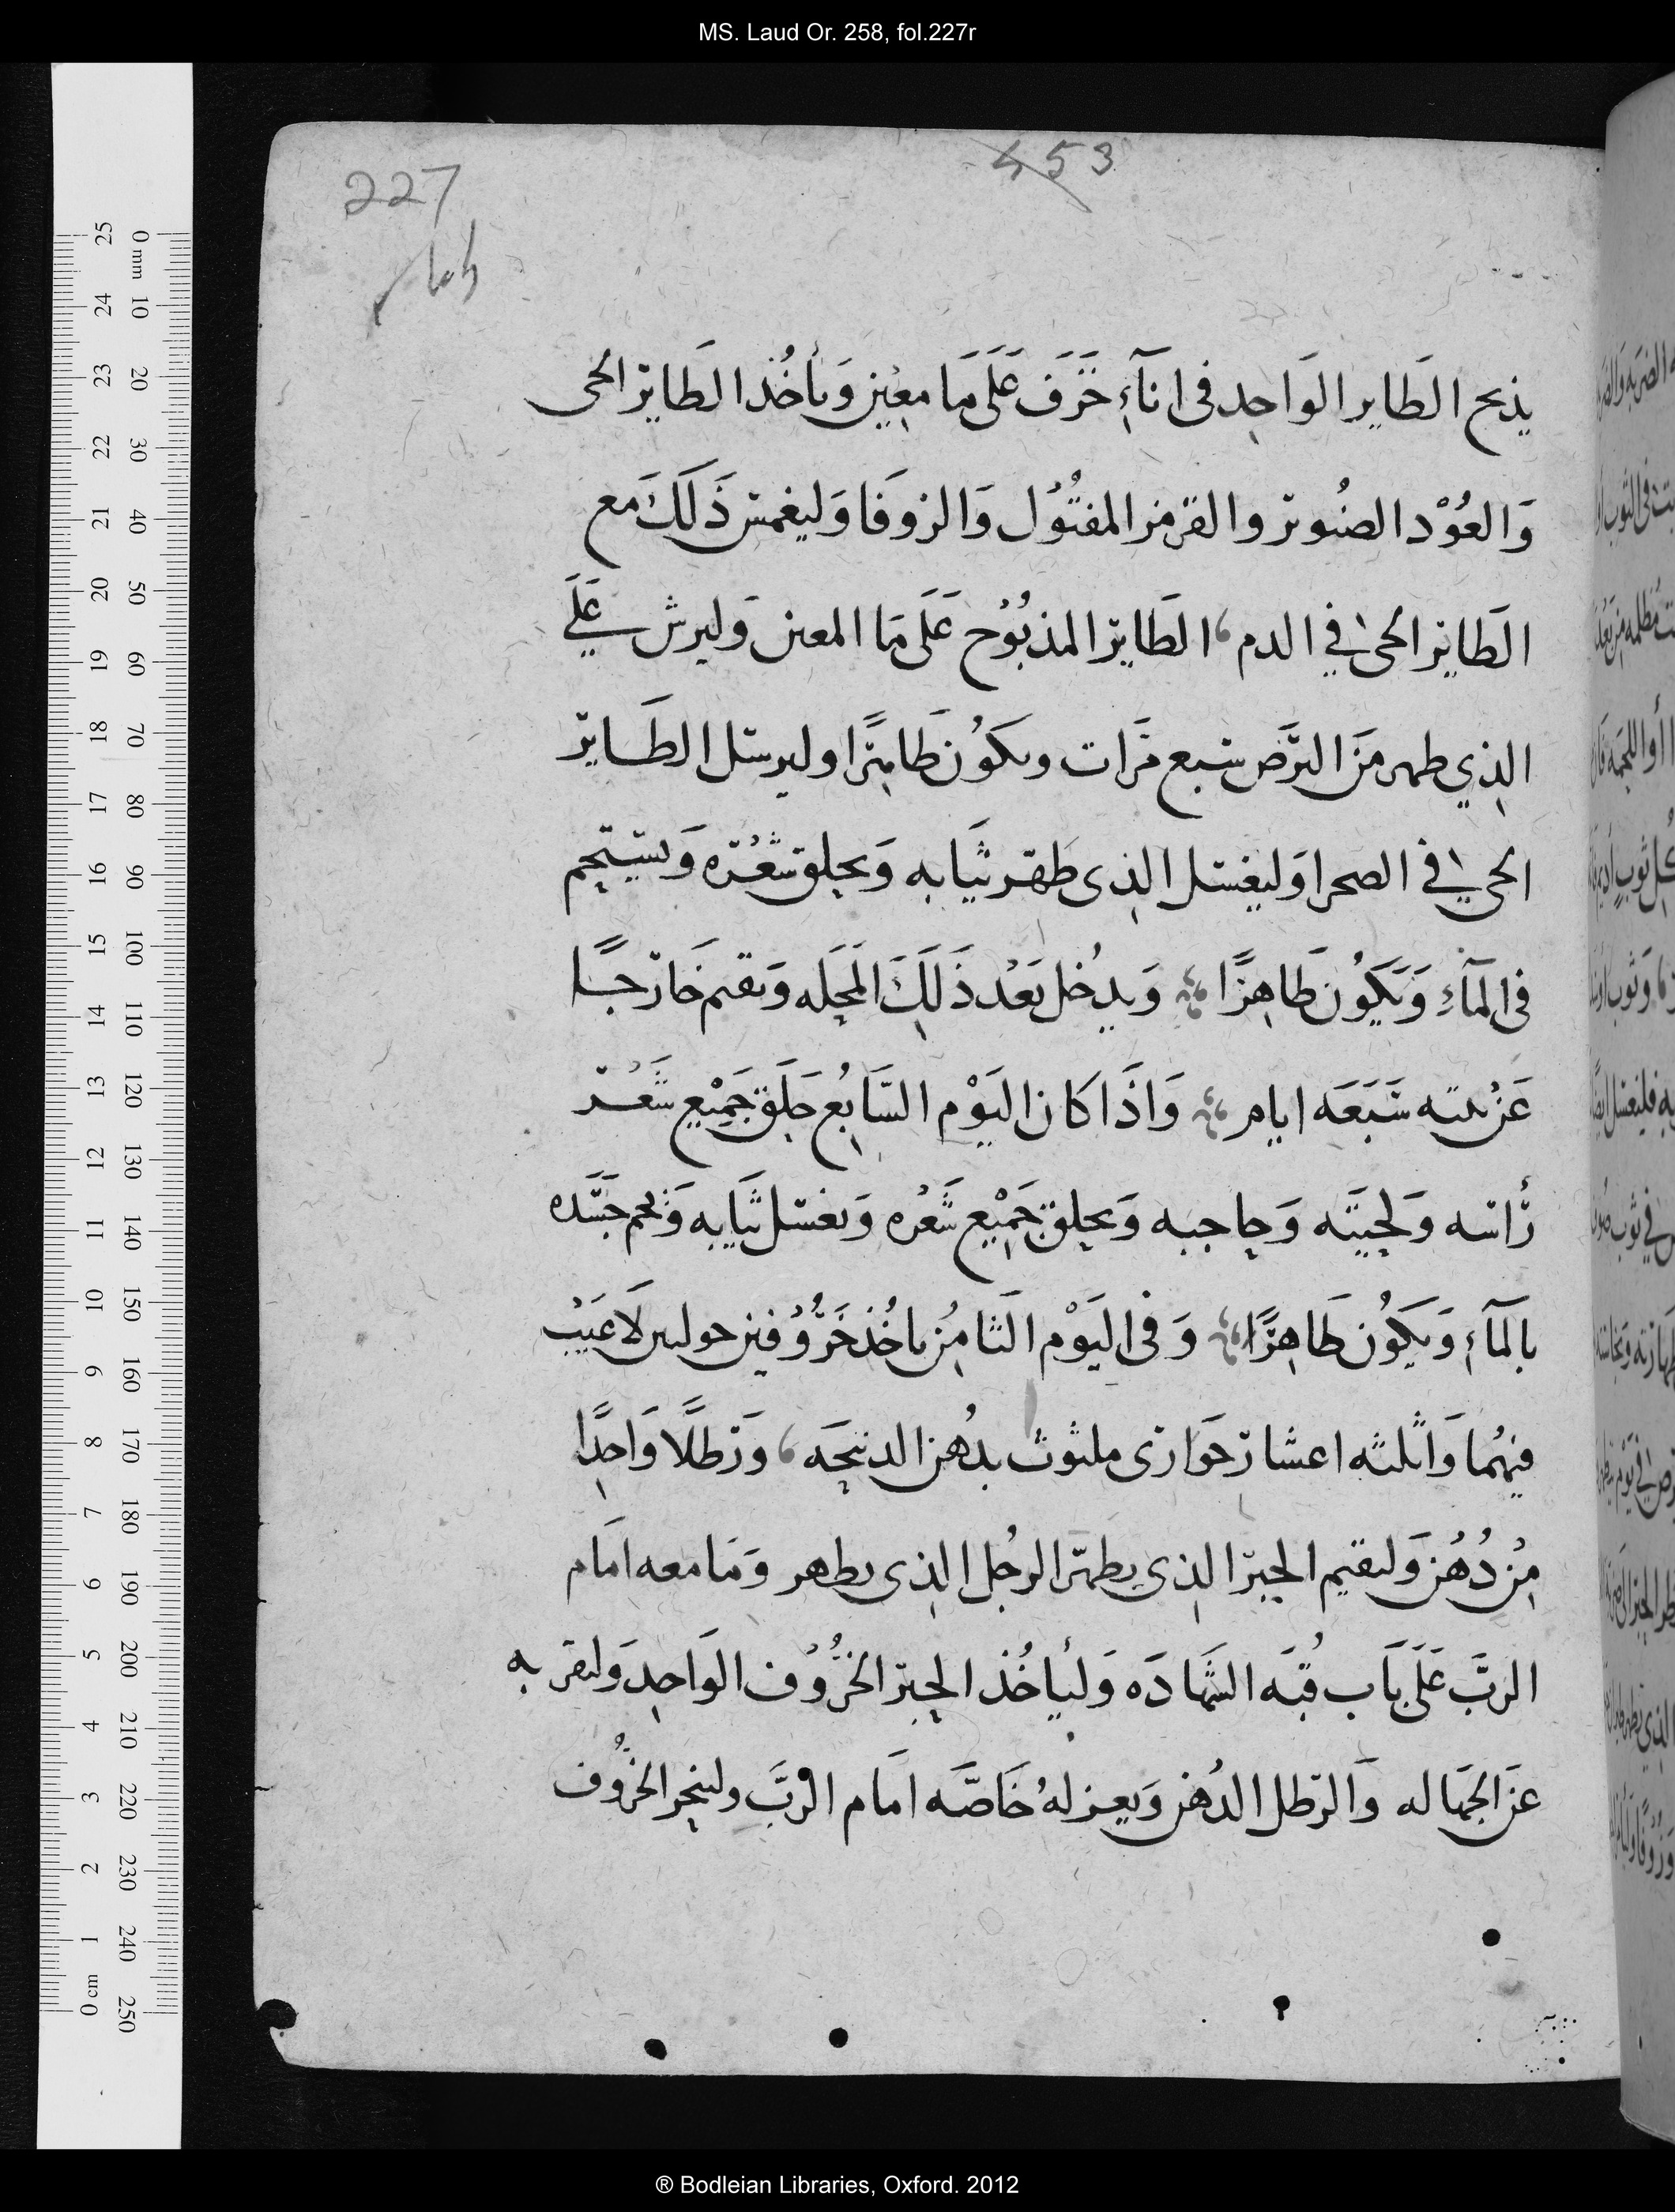 MS. Laud Or. 258, fol.227r
453
227
يذبح الطاير الواحد فى اناءِ خَزَف عَلَى مَا معِين وَيأخُذ الطَاير الحى
وَالعُوْد الصنُوبر والقرمز المفتُوُل وَالزوَفَا وَليغمس ذَلَكَ مع
الطَاير الحى في الدم، الطَاير المذبُوُح عَلَى مَا المعين وَليرش عَلَي
الذِي طهر مَن البَرَص سبع مَرات ويكَوُن طَاهرًا وليرسل الطَاير
الحي في الصحرا وَليغسل الذِى طَهَر ثيَابه وَيحلق شَعُرَه وَيَستَحِم
فى المآءِ وَيَكَوُن طَاهِرًا وَيدُخل بَعْد ذَلِكَ المَحِلَه وَيقيم خَارجًا
عَنْ بيته سَبَعَه ايام وَاذَا كان اليَوْم السَابِعُ حَلَق جَمِيْع شَعُر
رَأسه وَلِحيَتَه وَحاجبيه وَيحلق جَمِيْع شَعْره وَيغسل ثيَابه وَيحم جَسَده
بالمآءِ وَيكَوُن طَاهِرًا وَفى اليَوْم الثَامِنُ ياخُذ خَرُوُفين حوليين لَا عَيَبْ
فيهُما وَثلثه اعشار حَوَارى ملثوث بدُهن الدنيحَه، وَرَطلًا وَاحِدًا
مِنْ دُهُن وَليقيم الحِبر الذِى يطهر الرجُل الذِى يطهر وَمَا معه امَام
الربَّ عَلَى بَاب قُبَه الشَهادَه وَليأخُذ الحِبر الخرُوُف الوَاحِد وَليقربه
عَن الجهَاله وَالرطل الدُهن وَيعزلهُ خَاصَه امَام الرَبَّ ولينحر الخرُوُف
® Bodleian Libraries, Oxford. 2012